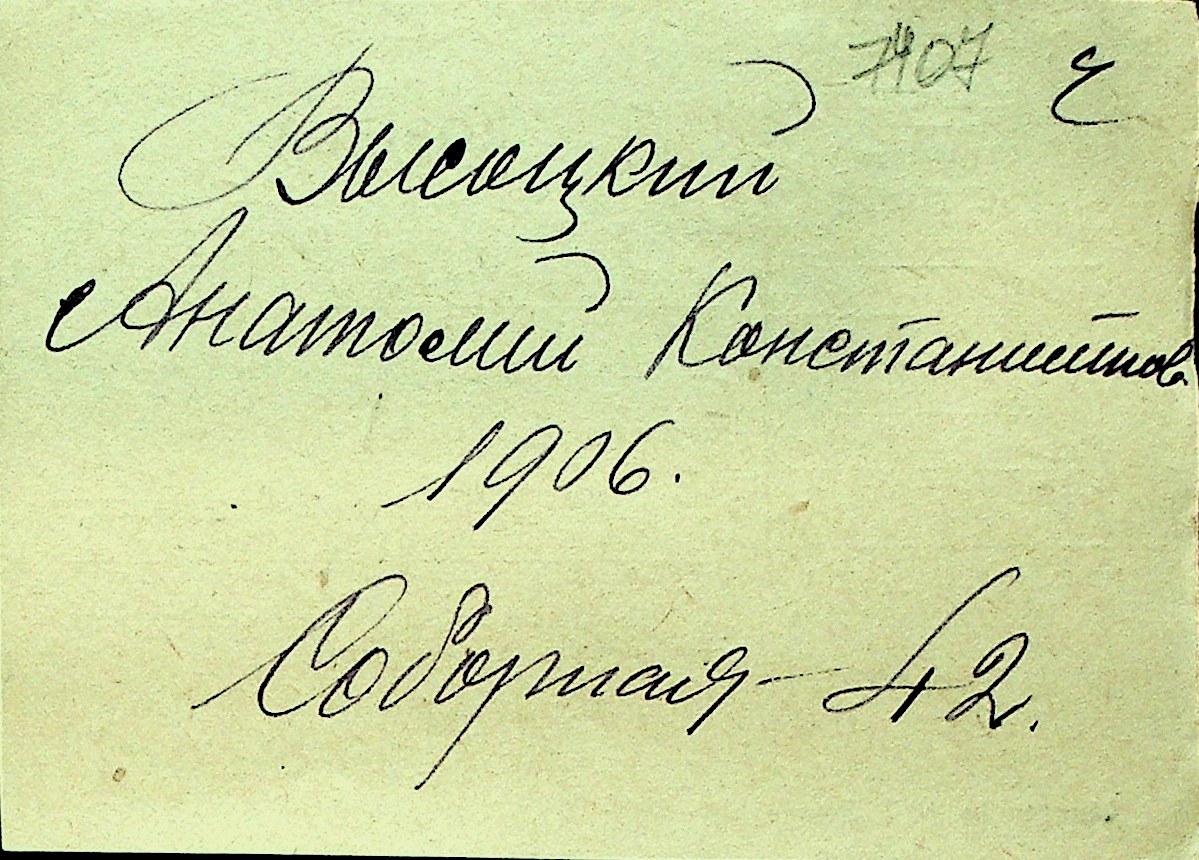 7407 г
Высоцкий
Анатолий Константинов.
1906.
Соборная - 42.